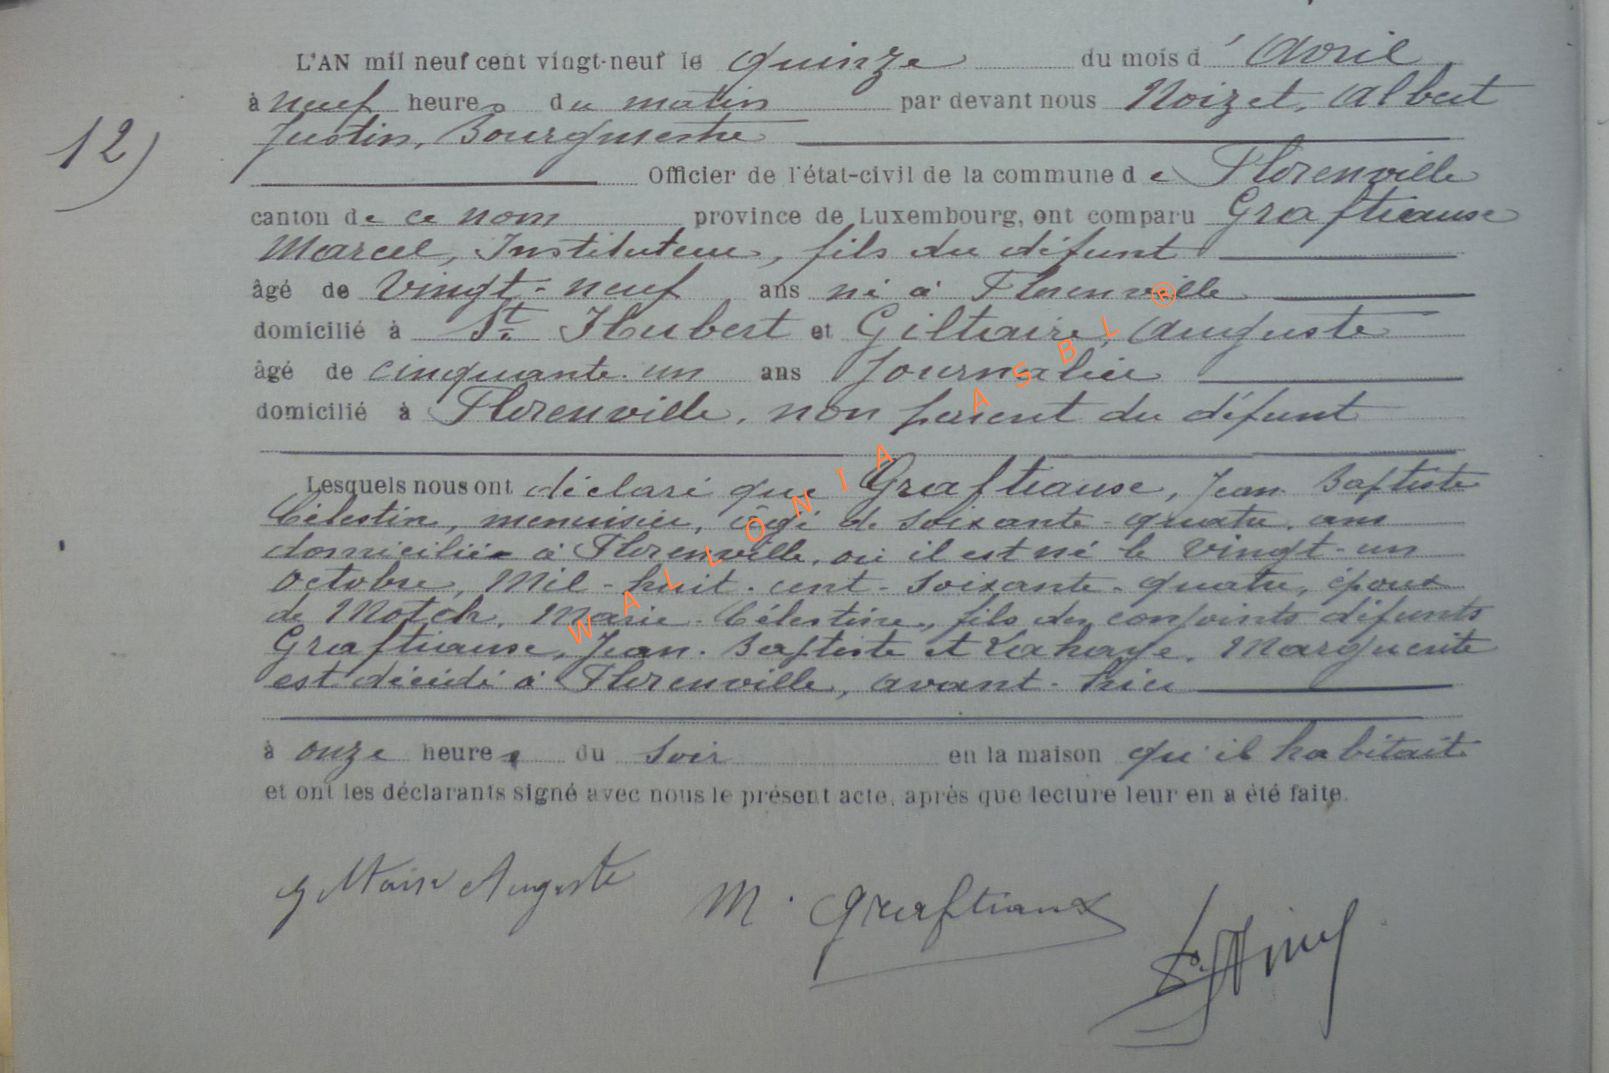 L'AN mil neuf cent vingt-neuf le quinze du mois d' Avril
à neuf heures du matin par devant nous Noizet, Albert
12)
Justin, Bourgmestre
Officier de l'état-civil de la commune de Florenville
canton de ce nom province de Luxembourg, ont comparu Graftiause
Marcel, Instituteur, fils du défunt
âgé de vingt-neuf ans né à Florenville
domicilié à St. Hubert et Giltaire, Auguste
âgé de cinquante-un ans Journalier
domicilié à Florenville, non parent du défunt
Lesquels nous ont déclaré que Graftiause, Jean Baptiste
Célestin, menuisier, âgé de soixante-quatre ans
domicilié à Florenville, où il est né le vingt-un
Octobre, Mil-huit-cent-soixante-quatre, époux
de Motch, Marie-Célestine, fils des conjoints défunts
Graftiause, Jean-Baptiste et Lahaye, Marguerite
est décédé à Florenville, avant-hier
à onze heures du soir en la maison qu'il habitait
et ont les déclarants signé avec nous le présent acte, après que lecture leur en a été faite.
giltaire Auguste M. Graftiaux
WALLONIA ASBL ®